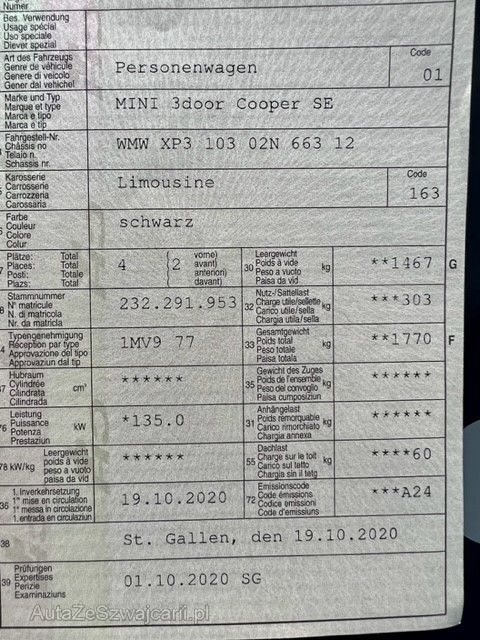 Numer
Bes. Verwendung
Usage spécial
Uso speciale
Diever spezial
Art des Fahrzeugs
Genre de véhicule
Genere di veicolo
Gener dal vehichel
Personenwagen
Code
01
Marke und Typ
Marque et type
Marca e tipo
Marca e tip
MINI 3door Cooper SE
Fahrgestell-Nr.
Châssis no
Telaio n.
Schassis nr.
WMW XP3 103 02N 663 12
Karosserie
Carrosserie
Carrozzeria
Carossaria
Limousine
Code
163
Farbe
Couleur
Colore
Colur
schwarz
Plätze: Total
Places: Total
Posti: Totale
Plazs: Total
4 {2
vorne)
avant)
anteriori)
davant)
30
Leergewicht
Poids à vide
Peso a vuoto
Paisa da vid
kg
**1467
G
Stammnummer
N° matricule
N. di matricola
Nr. da matricla
232.291.953
32
Nutz-/Sattellast
Charge utile/sellette
Carico utile/sella
Chargia utila/sella
kg
***303
Typengenehmigung
Réception par type
Approvazione del tipo
Approvaziun dal tip
1MV9 77
33
Gesamtgewicht
Poids total
Peso totale
Paisa totala
kg
**1770
F
37
Hubraum
Cylindrée
Cilindrata
Cilindrada
cm³
******
35
Gewicht des Zuges
Poids de l'ensemble
Peso del convoglio
Paisa cumposiziun
kg
******
76
Leistung
Puissance
Potenza
Prestaziun
kW
*135.0
31
Anhängelast
Poids remorquable
Carico rimorchiato
Chargia annexa
kg
******
78 kW/kg
Leergewicht
poids à vide
peso a vuoto
paisa da vid
******
55
Dachlast
Charge sur le toit
Carico sul tetto
Chargia sin il tetg
kg
****60
36
1. Inverkehrsetzung
1re mise en circulation
1a messa in circolazione
1. entrada en circulaziun
19.10.2020
72
Emissionscode
Code émissions
Codice emissioni
Code d'emissiuns
***A24
38
St. Gallen, den 19.10.2020
39
Prüfungen
Expertises
Perizie
Examinaziuns
01.10.2020 SG
AutaZeSzwajcarii.pl